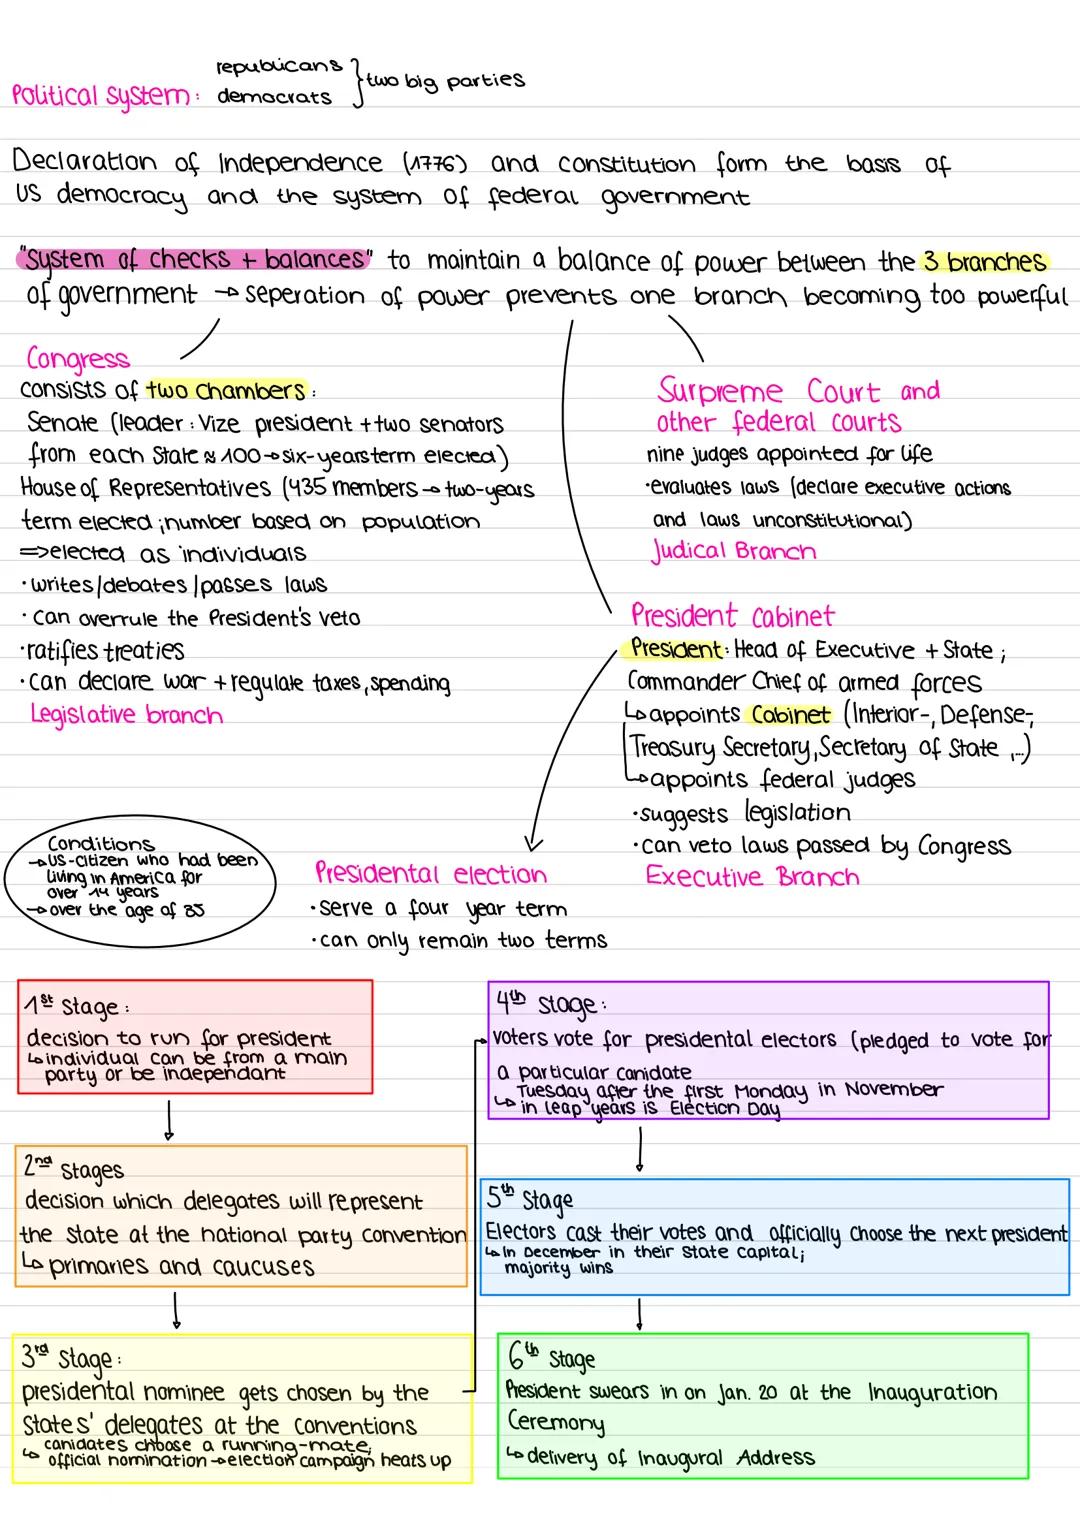 republicans
Political System: democrats } two big parties
Declaration of Independence (1776) and constitution form the basis of
US democracy and the system of federal government
"System of checks + balances" to maintain a balance of power between the 3 branches
of government → seperation of power prevents one branch becoming too powerful
Congress
consists of two chambers:
Senate (leader: Vize president + two senators
from each State ≈ 100 → six-years term elected)
House of Representatives (435 members → two-years
term elected; number based on population
=> elected as individuals
· writes/debates/passes laws
· can overrule the President's veto
· ratifies treaties
· can declare war + regulate taxes, spending
Legislative branch
Surpreme Court and
other federal courts
nine judges appointed for life
· evaluates laws (declare executive actions
and laws unconstitutional)
Judical Branch
President Cabinet
President: Head of Executive + State;
Commander Chief of armed forces
↳ appoints Cabinet (Interior-, Defense-,
Treasury Secretary, Secretary of State, ...)
↳ appoints federal judges
· suggests legislation
· can veto laws passed by Congress
Executive Branch
Conditions
→ US-citizen who had been
living in America for
over 14 years
→ over the age of 35
Presidental election
· serve a four year term
· can only remain two terms
1st Stage:
decision to run for president
↳ individual can be from a main
party or be independant
2nd Stages
decision which delegates will represent
the State at the national party convention
↳ primaries and caucuses
3rd Stage:
presidental nominee gets chosen by the
States' delegates at the conventions
↳ canidates choose a running-mate,
official nomination → election campaign heats up
4th Stage:
voters vote for presidental electors (pledged to vote for
a particular canidate
↳ Tuesday after the first Monday in November
in leap years is Election Day
5th Stage
Electors cast their votes and officially choose the next president
↳ in December in their State Capital;
majority wins
6th Stage
President swears in on Jan. 20 at the Inauguration
Ceremony
↳ delivery of Inaugural Address